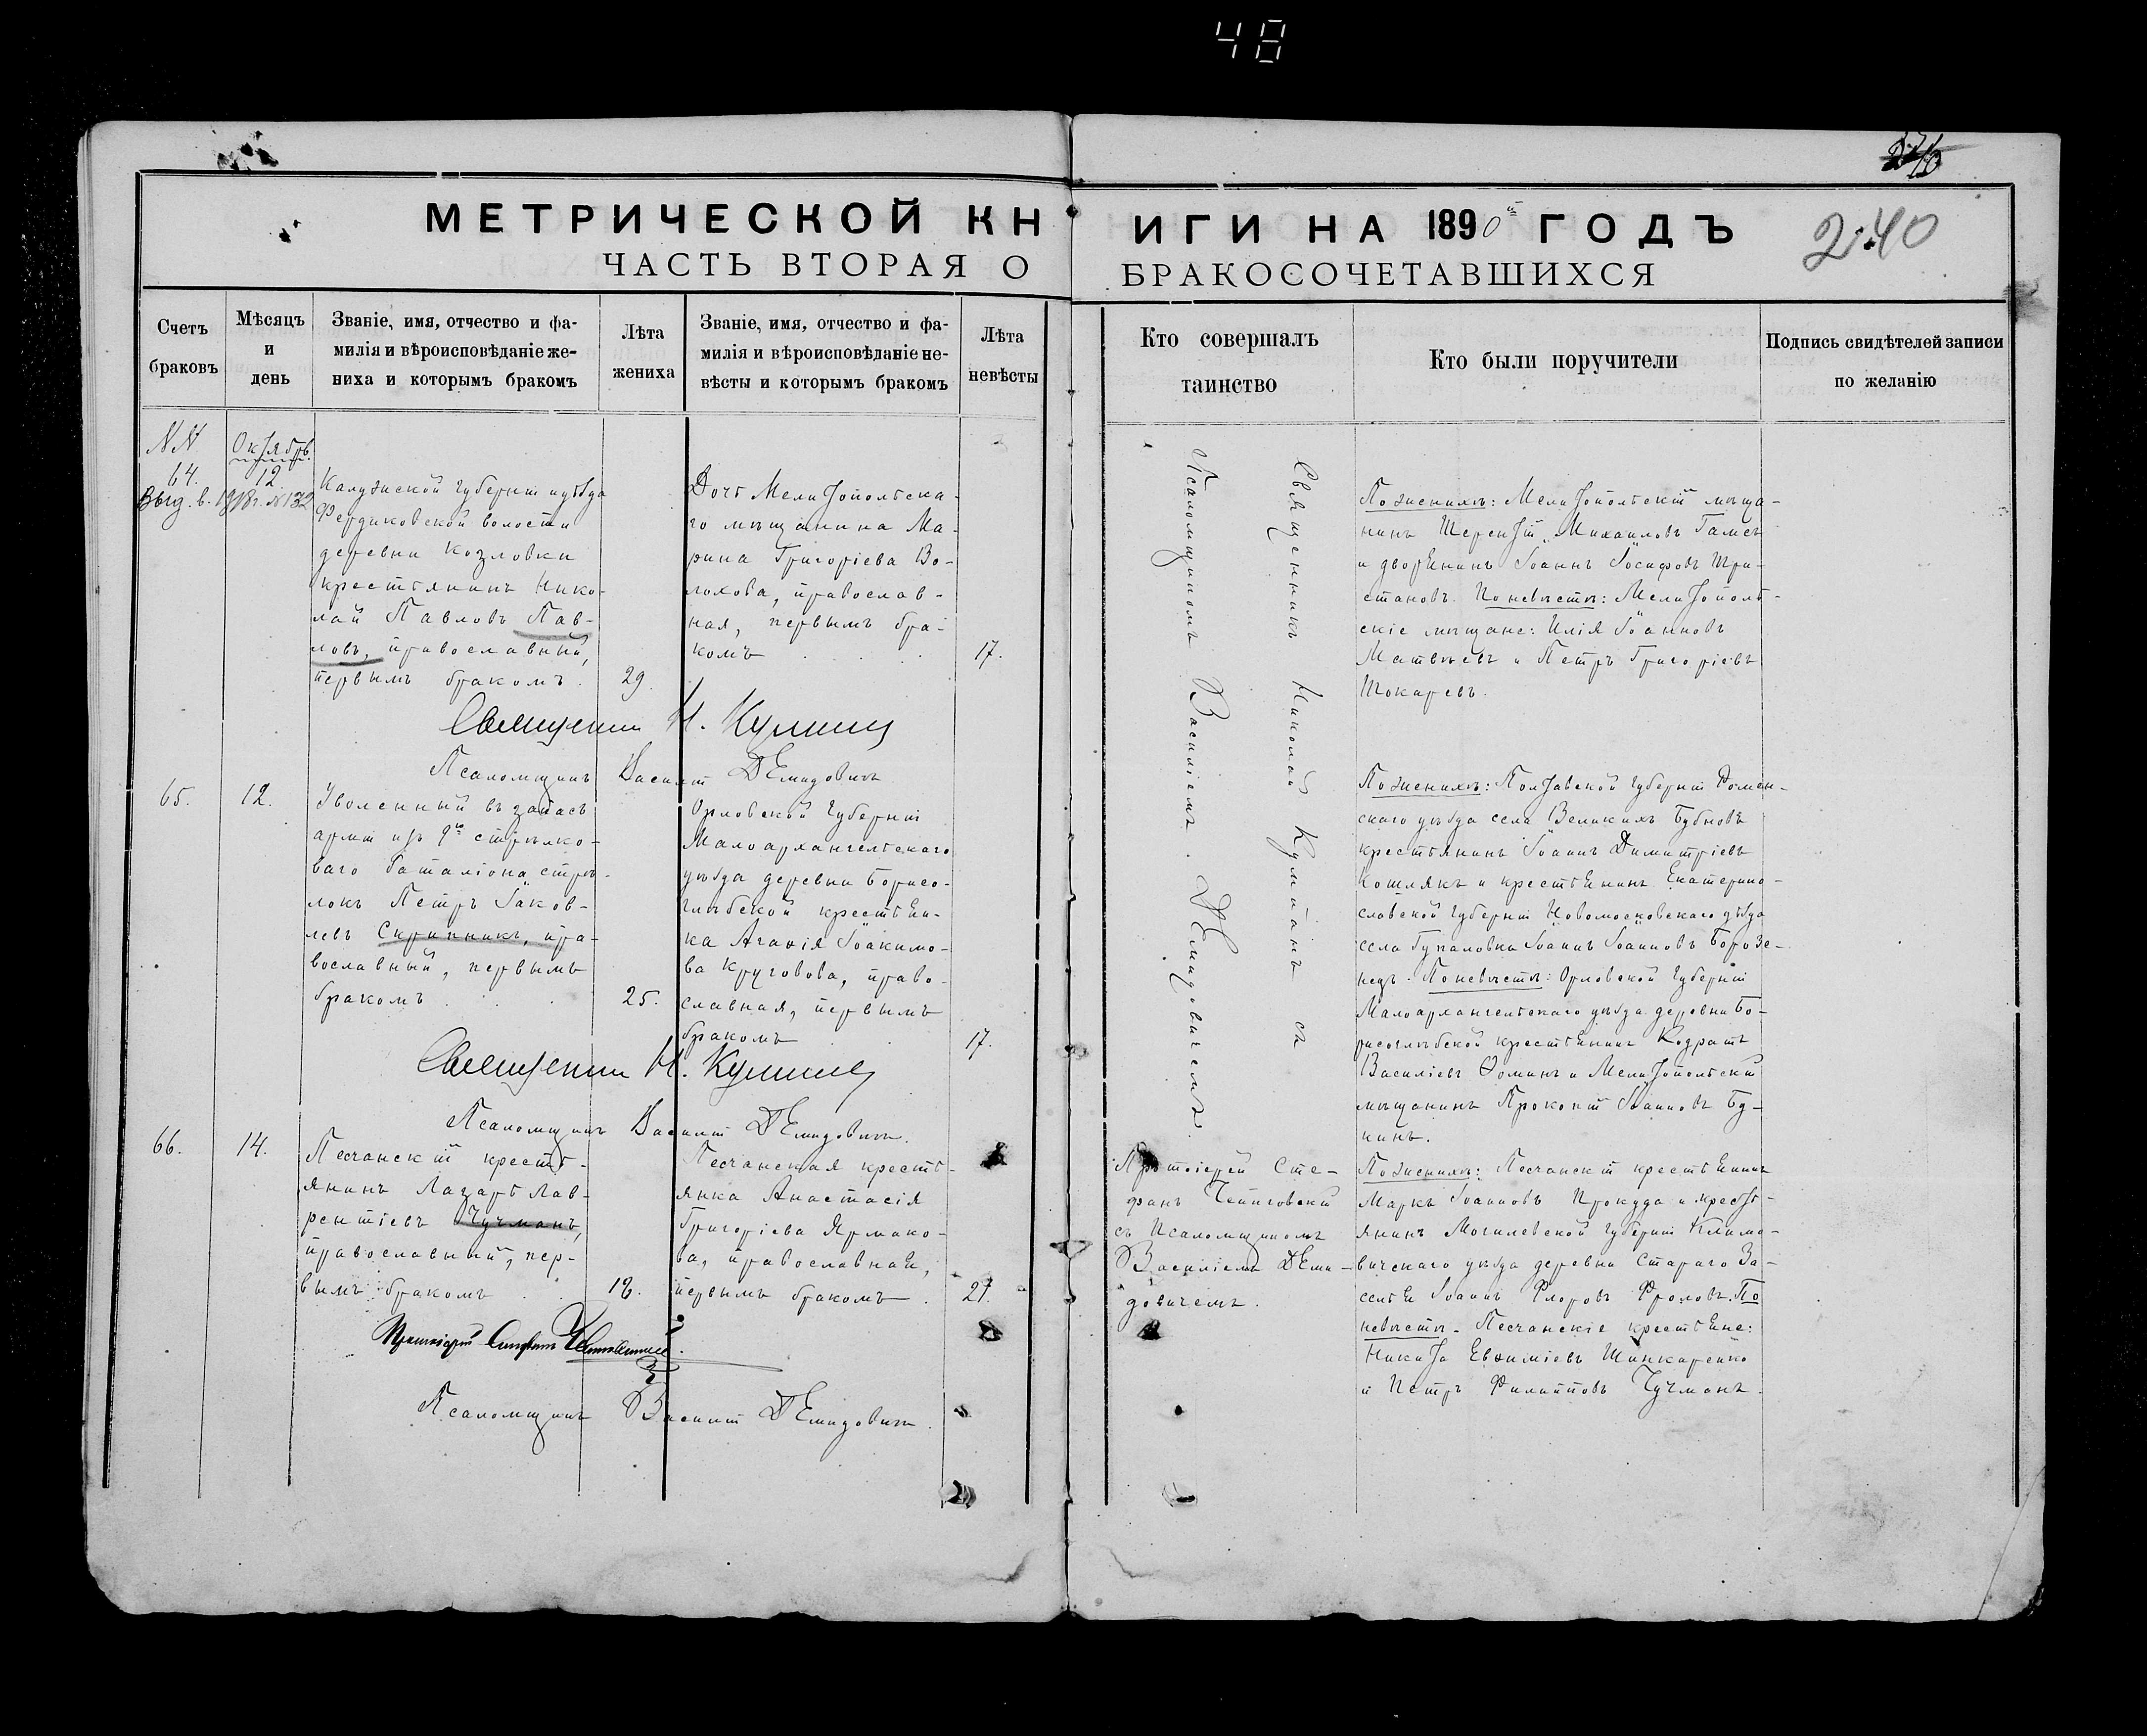 48
240
МЕТРИЧЕСКОЙ КНИГИ НА 1890й ГОДЪ
ЧАСТЬ ВТОРАЯ О БРАКОСОЧЕТАВШИХСЯ
Счетъ
браковъ
Мѣсяцъ
и
день
Званіе, имя, отчество и фа-
милія и вѣроисповѣданіе же-
ниха и которымъ бракомъ
Лѣта
жениха
Званіе, имя, отчество и фа-
милія и вѣроисповѣданіе не-
вѣсты и которымъ бракомъ
Лѣта
невѣсты
Кто совершалъ
таинство
Кто были поручители
Подпись свидѣтелей записи
по желанію
NN
Октябрь
64.
12
Выд. в. 1918г. №132
Калужской Губерніи и уѣзда
волости
деревни Козловки
крестьянинъ Нико-
лай Павловъ Пав-
ловъ, православный,
первымъ бракомъ.
29.
Дочь Мелитопольска-
го мѣщанина Ма-
рина Григоріева Во-
лохова, православ-
ная, первымъ бра-
комъ
17.
Священникъ Н.
Псаломщикъ Василій Демидовичъ
Священникъ Николай съ
Псаломщикомъ Василіемъ Демидовичемъ.
По женихѣ: Мелитопольскій мѣща-
нинъ Терентій Михаиловъ
и дворянинъ Іоаннъ Іосифовъ Три-
становъ. По невѣстѣ: Мелитополь-
скіе мѣщане: Илія Іоанновъ
Матвѣевъ и Петръ Григоріевъ
Токаревъ.
65.
12.
Уволенный въ запасъ
арміи изъ 9го стрѣлко-
ваго баталіона стрѣ-
локъ Петръ Іаков-
левъ Скрипникъ, пра-
вославный, первымъ
бракомъ
25.
Орловской Губерніи
Малоархангельскаго
уѣзда деревни Борисо-
глѣбской крестьян-
ка Агаѳія Іоакимо-
ва Круговова, право-
славная, первымъ
бракомъ
17.
Священникъ Н.
Псаломщикъ Василій Демидовичъ.
По женихѣ: Полтавской Губерніи Ромен-
скаго уѣзда села Великихъ Бубновъ
крестьянинъ Іоаннъ Димитріевъ
Котлякъ и крестьянинъ Екатерино-
славской Губерніи Новомосковскаго уѣзда
села Гупаловки Іоаннъ Іоанновъ Борозе-
нецъ. По невѣстѣ: Орловской Губерніи
Малоархангельскаго уѣзда деревни Бо-
рисоглѣбской крестьянинъ Кодратъ
Василіевъ Ѳоминъ и Мелитопольскій
мѣщанинъ Прокопій Іоанновъ Бу-
нинъ.
66.
14.
Песчанскій кресть-
янинъ Лазарь Лав-
рентіевъ Чучманъ,
православный, пер-
вымъ бракомъ
18.
Песчанская кресть-
янка Анастасія
Григоріева Ярмако-
ва, православная,
первымъ бракомъ.
21.
Протоіерей Стефанъ
Псаломщикъ Василій Демидовичъ.
Протоіерей Сте-
фанъ
съ Псаломщикомъ
Василіемъ Деми-
довичемъ.
По женихѣ: Песчанскій крестьянинъ
Маркъ Іоанновъ Прокуда и кресть-
янинъ Могилевской Губерніи Климо-
вичскаго уѣзда деревни Стараго За-
селья Іоаннъ Флоровъ Фроловъ. По
невѣстѣ. Песчанскіе крестьяне:
Никита Евѳиміевъ Шинкаренко
и Петръ Филипповъ Чучманъ.